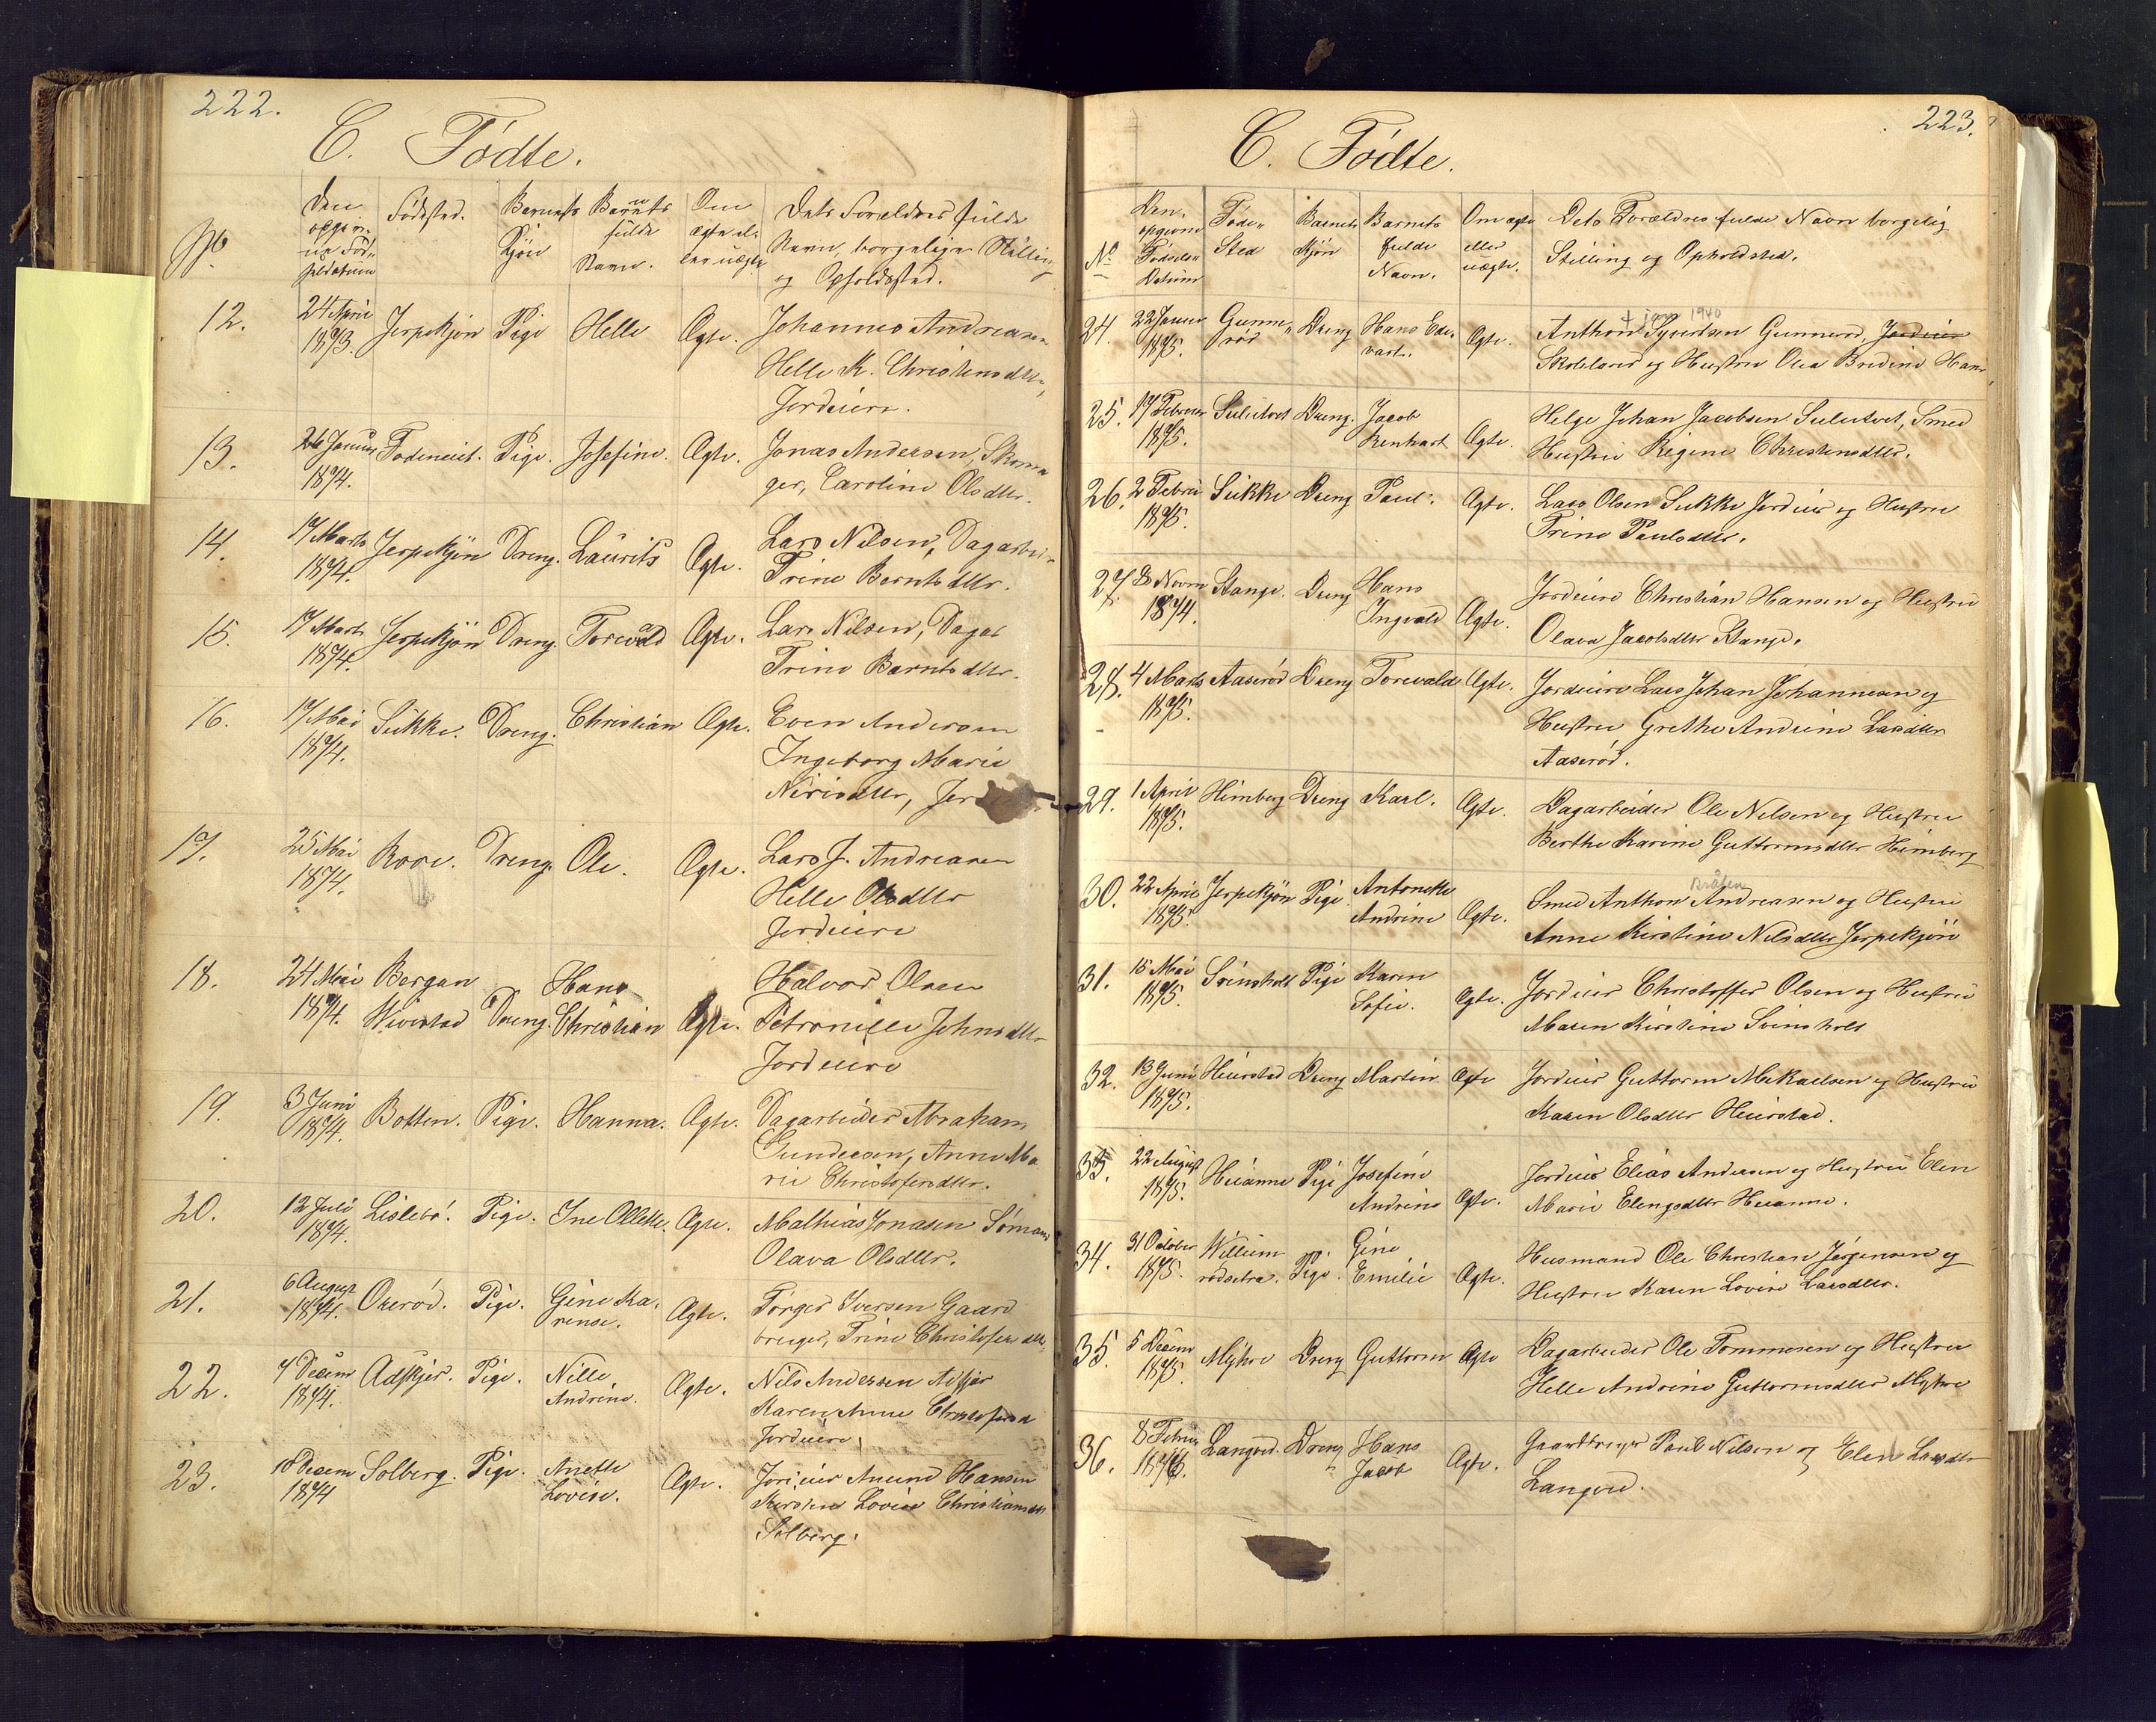 222.
C. Födte.
No
Den opgivne Födselsdatum
Födested.
Barnets Kjön
Barnets fulde Navn.
Om ægte eller uægte
Dets Foreldres fulde Navn, borgelige Stilling og Opholdssted.
12. 24 April 1873. Jerpekjön Pige Helle Ægte. Johannes Andreasen
Helle K. Christensdtr,
Jordeiere.
13. 26 Januar 1874. Pige. Josefine. Ægte. Jonas Andersen, Skoma
ger, Caroline Olsdtr.
14. 17 Marts 1874. Jerpekjön Dreng. Laurits Ægte. Lars Nilsen, Dagarbei
Trine Berntsdtr.
15. 17 Marts 1874. Jerpekjön Dreng. Torvald Ægte. Lars Nilsen, Dagar
Trine Barntsdtr.
16. 17 Mai 1874. Sukke. Dreng. Christian Ægte. Even Andersen
Ingeborg Marie
Nirisdtr, Jor
17. 25 Mai 1874. Rove. Dreng. Ole. Ægte. Lars J. Andreasen
Helle Olsdtr
Jordeiere
18. 24 Mai 1874. Bergan Wivestad Dreng. Hans Christian Ægte. Halvor Olsen
Petronille Johnsdtr
Jordeiere
19. 3 Juni 1874. Botten. Pige. Hanna. Ægte. Dagarbeider Abraham
Gundersen, Anne Ma
rie Christofersdtr.
20. 12 Juli 1874. Lislebö. Pige. Ine Ollette. Ægte. Mathias Jonasen Sömand
Olava Olsdtr.
21. 6 August 1874. Oseröd. Pige. Gine Ka- rense. Ægte. Törger Iversen Gaard
bruger, Trine Christofersdtr.
22. 7 Decem 1874. Adskjer. Pige. Nille Andrine. Ægte. Nils Andersen
Karen Anne Christofersd
Jordeiere.
23. 18 Decem 1874 Solberg. Pige. Anette Lovise. Ægte. Jordeier Amund Hansen
Kirsten Lovise Christiansdtr
Solberg.
223.
C. Födte.
No
Den opgivne Födsels Datum
Föde- Sted
Barnets Kjön
Barnets fulde Navn.
Om ægte eller uægte.
Dets Forældres fulde Navn borgelig Stilling og Opholdsted.
† jan 1940
24. 22 Januar 1875. Gunne- röd Dreng Hans Ed- vart. Ægte. Anthon Syvertsen Gunneröd, Jordeier
Skolelærer og Hustru Olea Bredine Hans
25. 17 Februar 1875. Sulutvet Dreng. Jacob Renhart Ægte. Helge Johan Jacobsen Sulutvet, Smed
Hustru Regine Christensdtr.
26. 2 Februar 1875. Sukke Dreng Paul. Ægte. Lars Olsen Sukke Jordeier og Hustru
Trine Paulsdtr.
27. 8 Novm 1874. Stange. Dreng Hans Ingvald Ægte. Jordeiere Christian Hansen og Hustru
Olava Jacobsdtr Stange.
28. 4 Marts 1875. Aaseröd Dreng Torevald Ægte. Jordeiere Lars Johan Johannesen og
Hustru Grethe Andrine Larsdtr
Aaseröd.
29. 1 April 1875. Himberg Dreng Karl. Ægte. Dagarbeider Ole Nilsen og Hustru
Berthe Karine Guttormsdtr Himberg
Bråten
30. 22 April 1875. Jerpekjön Pige Antonette Andrine Ægte. Smed Anthon Andreasen og Hustru
Anne Kirstine Nilsdtr Jerpekjön
31. 15 Mai 1875. Svinsholt Pige Karen Sofie. Ægte. Jordeier Christoffer Olsen og Hustru
Maren Kirstine Svinsholt
32. 13 Juni 1875. Huirstad Dreng Martin Ægte Jordeier Guttorm Mikaelsen og Hustru
Karen Olsdtr Huirstad.
33. 22 August 1875. Huianne Pige Josefine Andrine Ægte. Jordeier Elias Andersen og Hustru Elen
Marie Elingsdtr Huianne.
34. 31 October 1875. Willum- rödsetra. Pige. Gine Emilie Ægte. Husmand Ole Christian Jörgensen og
Hustru Karen Lovise Larsdtr.
35. 5 Decem 1875. Myhre Dreng Guttorm Ægte Dagarbeider Ole Tommesen og Hustru
Helle Andrine Guttormsdtr Myhre
36. 8 Februar 1876. Langerd. Dreng Hans Jacob Ægte. Gaardbruger Paul Nilsen og Elen Larsdtr
Langerd.